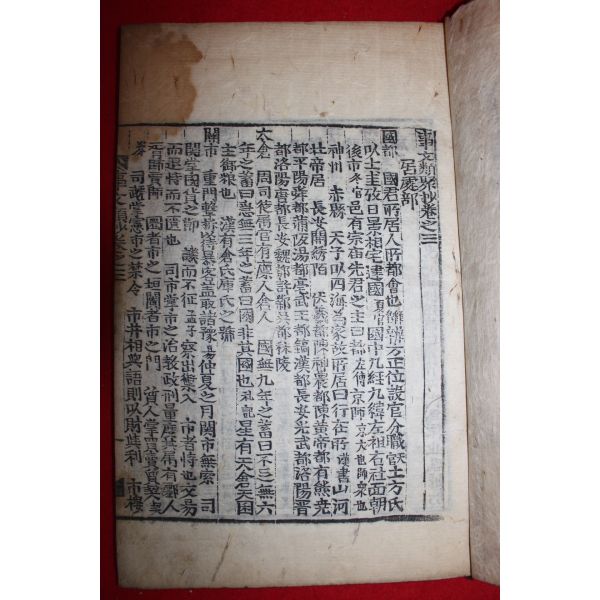 事文類聚抄卷之三
居處部
國都 國君所居人所都會也 辨方正位設官分職 土方氏
以土圭 日景相宅建國 國中九經九緯左祖右社面朝
後市 邑有宗廟先君之主曰都 左傳 京師 京大也師衆也
神州 赤縣 天子以四海爲家故所居曰行在所 漢書 山河
壯帝居 長安 伏羲都陳神農都陳黃帝都有熊堯
都平陽舜都蒲阪湯都亳武王都鎬漢都長安光武都洛陽晋
都洛陽唐都長安魏都許都吳都秣陵
太倉 周司徒 官有廩人倉人 國無九年之蓄曰不足無六
年之蓄曰急無三年之蓄曰國非其國也 禮記 星有天倉天囷
主御粮也 漢有倉氏庫氏之號
關市 重門擊柝以待暴客盖取諸豫 易 仲夏之月關市無索 司
關掌國貨之節 譏而不征 孟子 察出禦入 市者恃也交易
而退恃而不匱也 司市掌市之治教政刑量度禁
胥師賈師 闤者市之垣闠者市之門 質人掌
券 司 掌憲市之禁令 市井相與語則以財 利 市樓
事文類聚抄卷之三